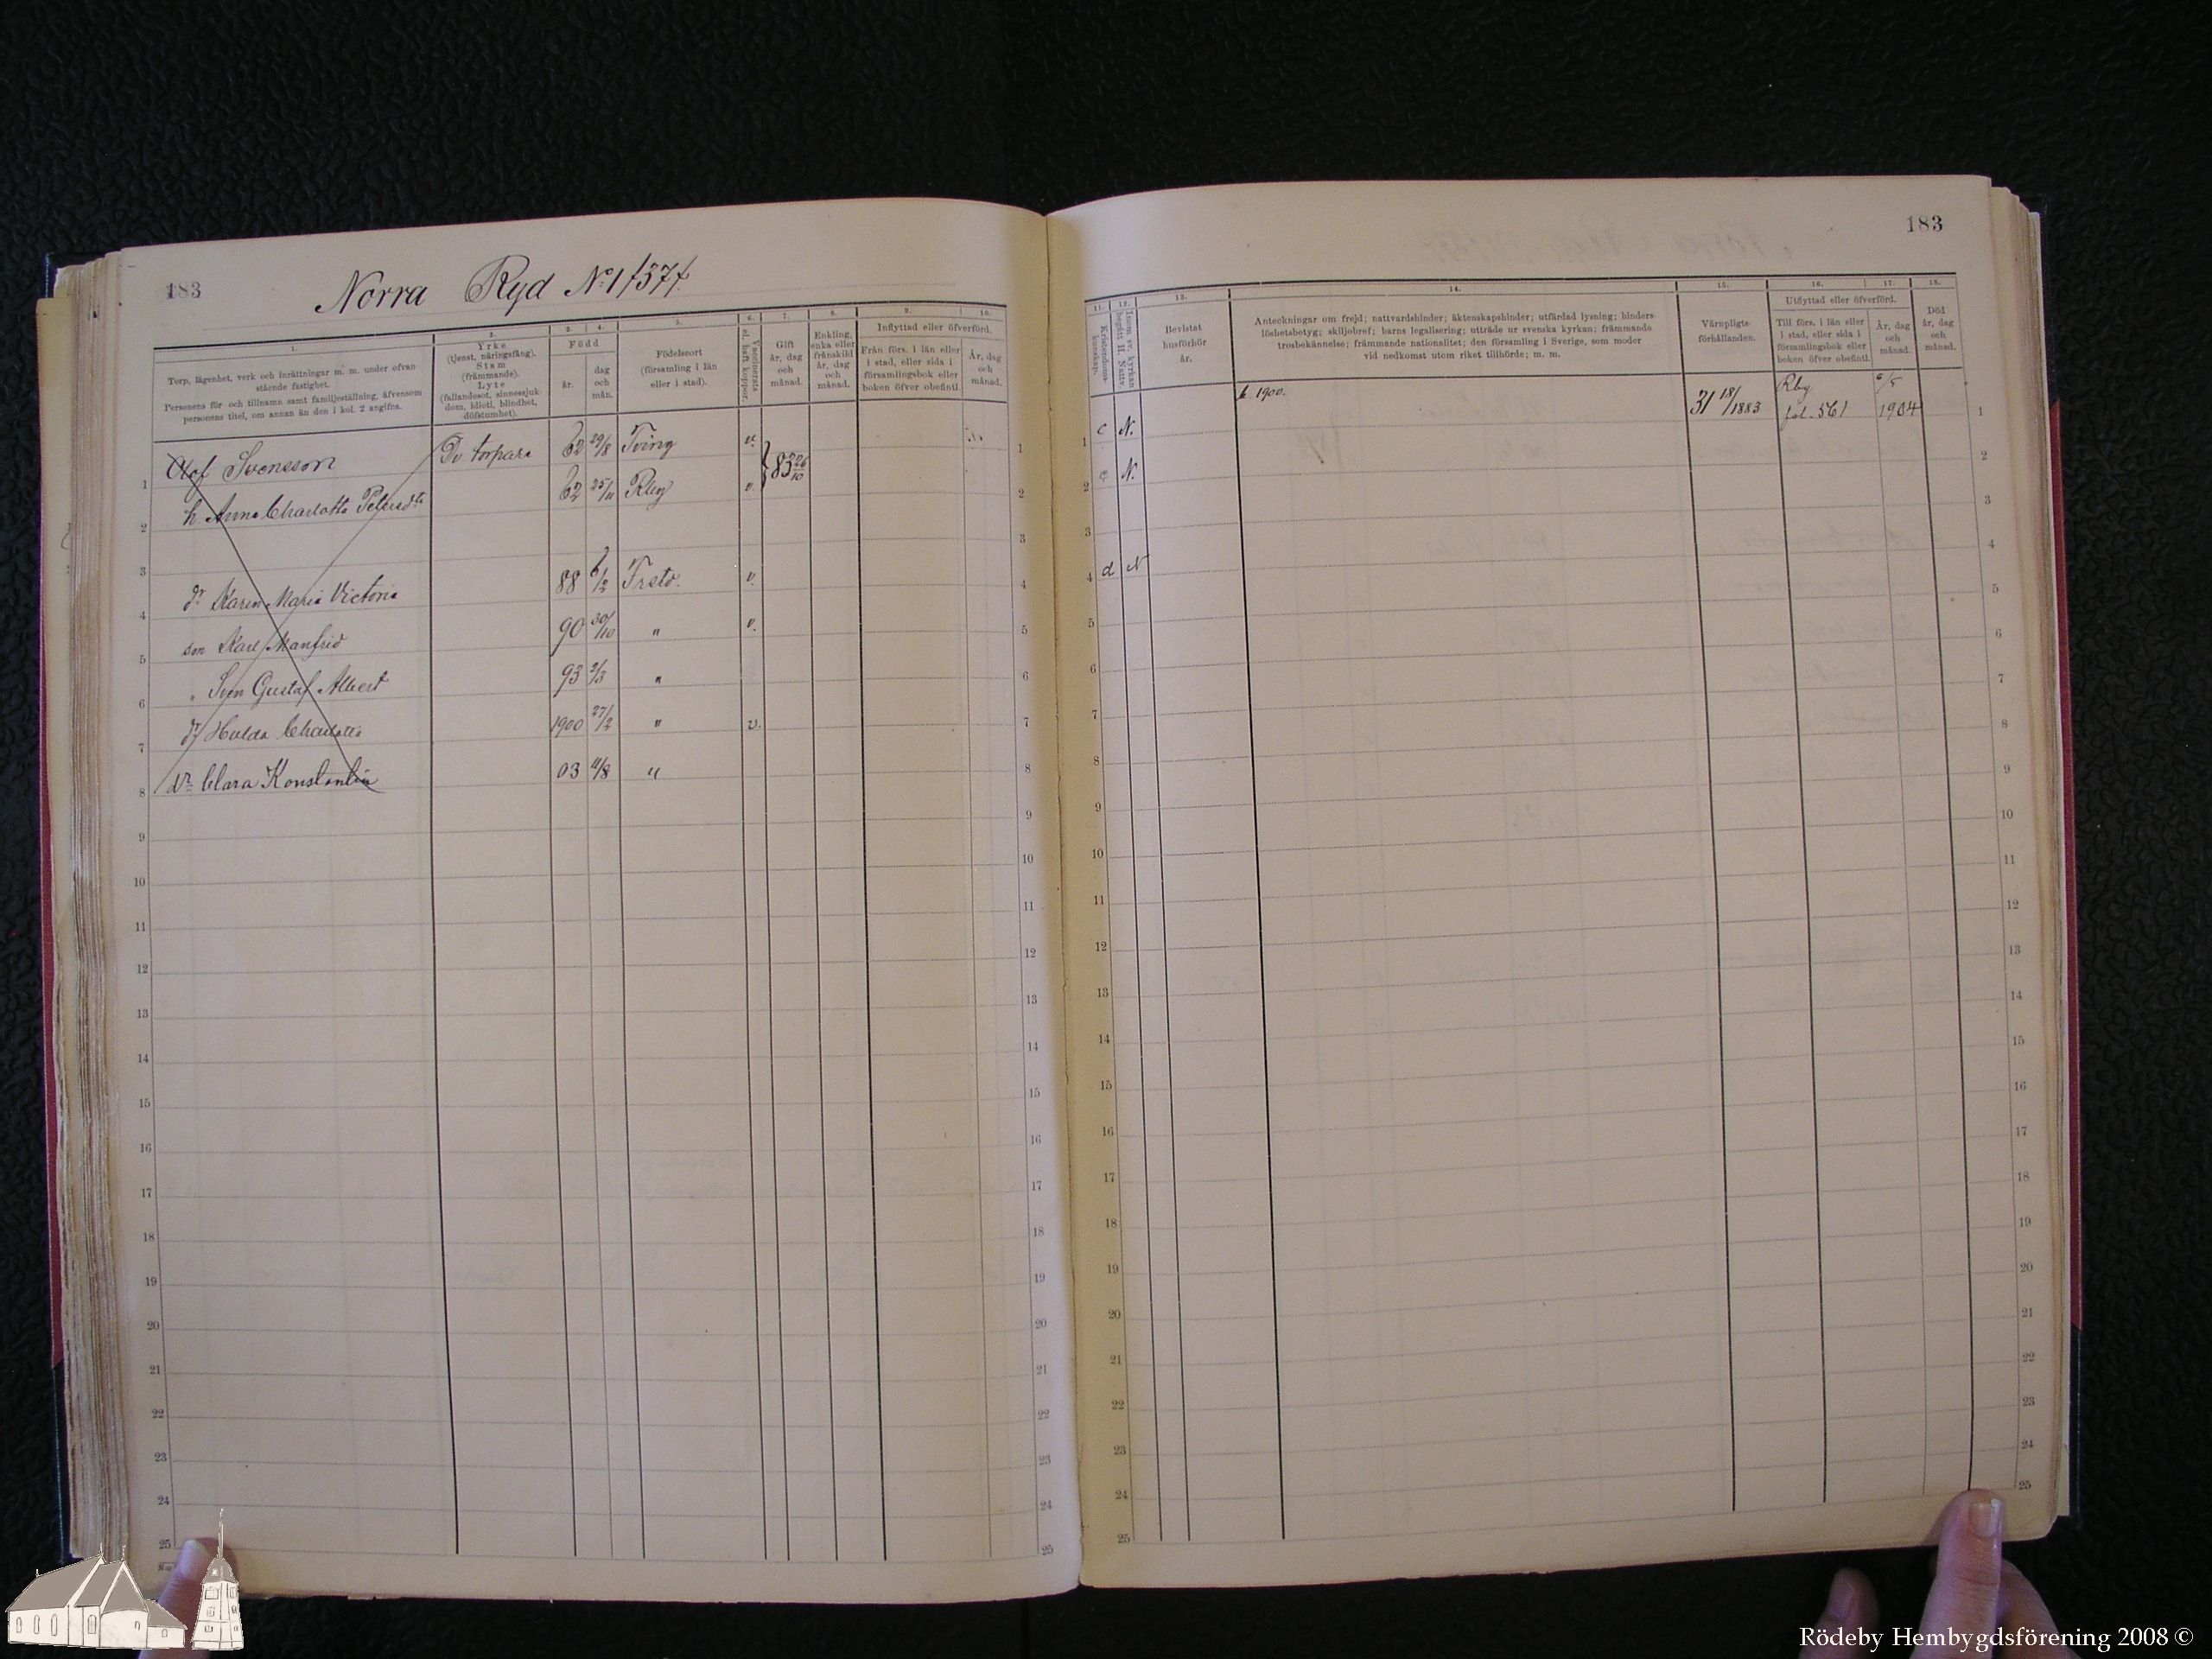 183
Norra Ryd No 1 137/
1.
Torp, lägenhet, verk och inrättningar m. m. under ofvan
stående fastighet.
Personens för- och tillnamn samt familjeställning, äfvensom
personens titel, om annan än den i kol. 2 angifna.
2.
Yrke
(tjenst, näringsfång).
Stam
(främmande).
Lyte
(fallandesot, sinnessjuk-
dom, idioti, blindhet,
döfstumhet).
3. 4.
Född
år.
dag
och
mån.
5.
Födelseort
(församling i län
eller i stad).
6.
Vaccinerats
el. haft koppor.
7.
Gift
år, dag
och
månad.
8.
Enkling,
enka eller
frånskild
år, dag
och
månad.
9. 10.
Inflyttad eller öfverförd.
Från förs. i län eller
i stad, eller sida i
församlingsbok eller
boken öfver obefintl.
År, dag
och
månad.
1 Olof Svensson Do torpare 62 29/8 Tving v. 83 26/10 1
2 h. Anna Charlotta Petersdtr 62 25/11 Rby v. 2
3 3
4 dr Karin Maria Victoria 88 6/2 Frstd. v. 4
5 son Karl Manfrid 90 30/10 " v. 5
6 " Sven Gustaf Albert 93 2/3 " 6
7 dr Hulda Charlotta 1900 27/2 " v. 7
8 dr Clara Konstantia 03 11/8 " 8
9 9
10 10
11 11
12 12
13 13
14 14
15 15
16 16
17 17
18 18
19 19
20 20
21 21
22 22
23 23
24 24
25 25
183
11.
Kristendoms-
kunskap.
12.
Inom sv. kyrkan
begått H. Nattv.
13.
Bevistat
husförhör
år.
14.
Anteckningar om frejd; nattvardshinder; äktenskapshinder; utfärdad lysning; hinders-
löshetsbetyg; skiljobref; barns legalisering; utträde ur svenska kyrkan; främmande
trosbekännelse; främmande nationalitet; den församling i Sverige, som moder
vid nedkomst utom riket tillhörde; m. m.
15.
Värnpligts-
förhållanden.
16. 17.
Utflyttad eller öfverförd.
Till förs. i län eller
i stad, eller sida i
församlingsbok eller
boken öfver obefintl.
År, dag
och
månad.
18.
Död
år, dag
och
månad.
1 c N. b. 1900. 31 18/1883 Rby fol. 561 6/5 1904 1
2 c N. 2
3 3
4 d N 4
5 5
6 6
7 7
8 8
9 9
10 10
11 11
12 12
13 13
14 14
15 15
16 16
17 17
18 18
19 19
20 20
21 21
22 22
23 23
24 24
25 25
Rödeby Hembygdsförening 2008 ©